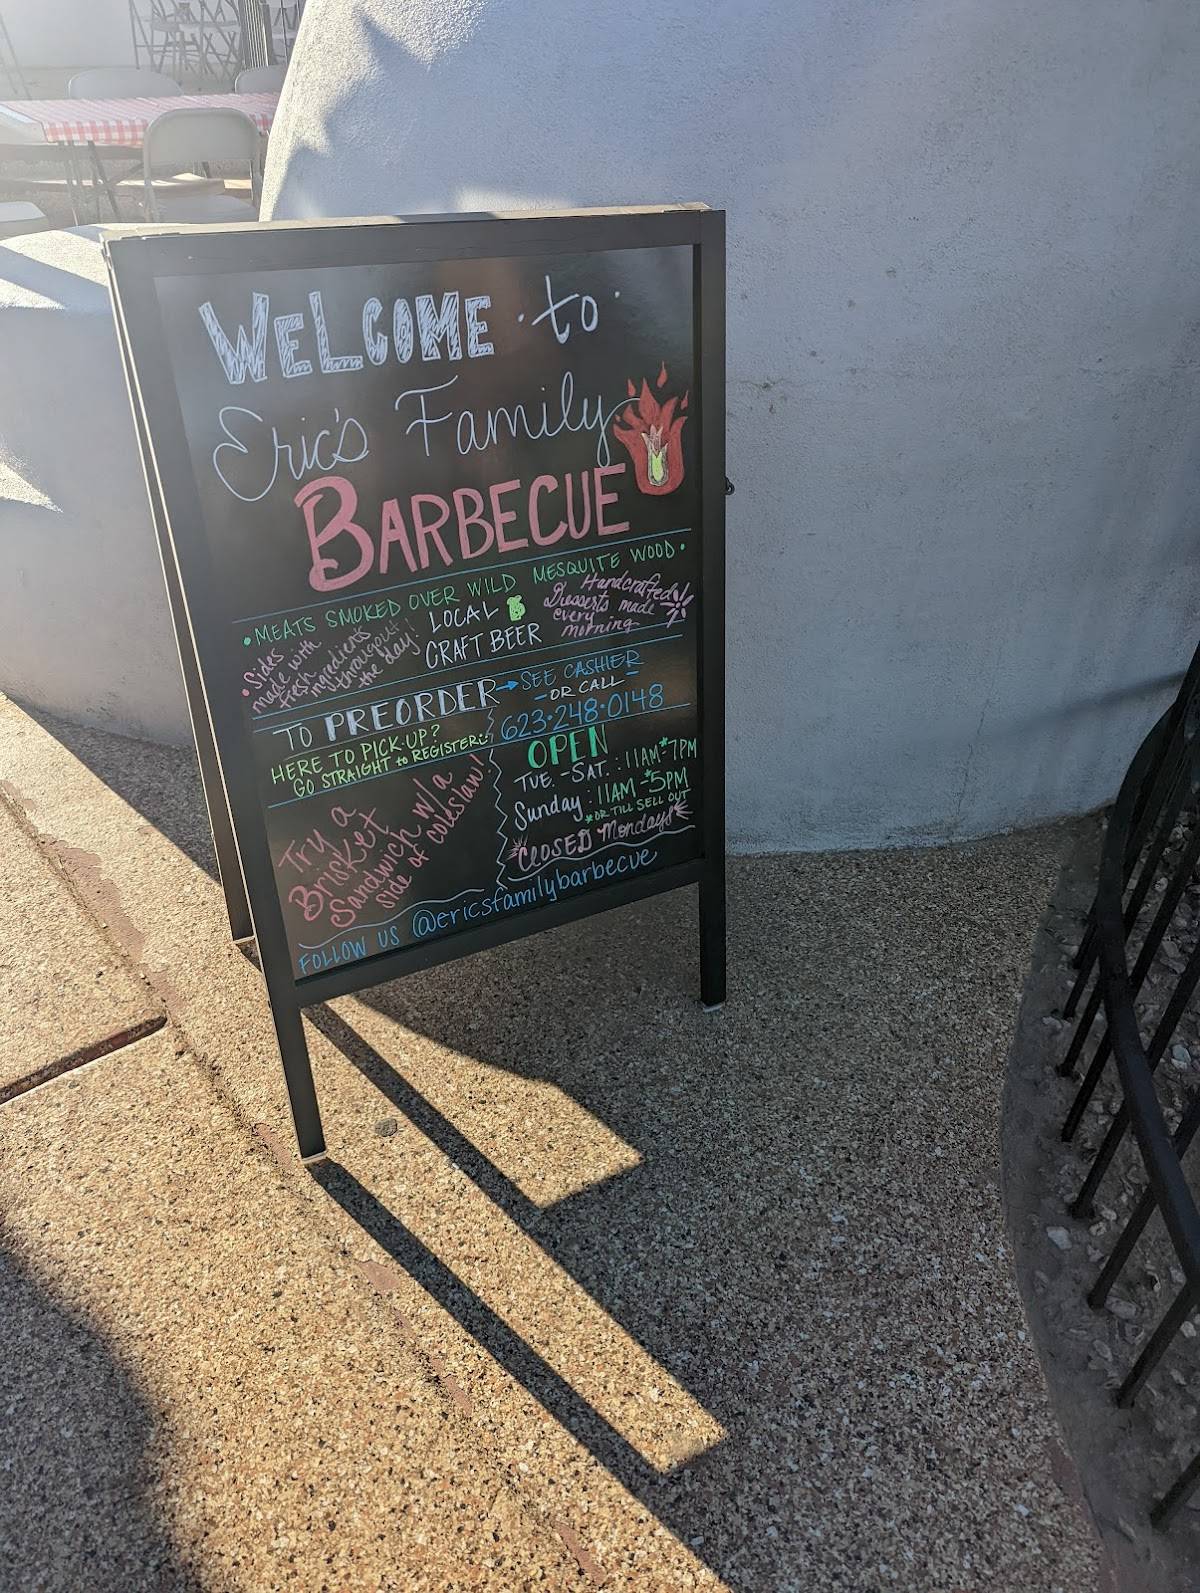 WELCOME · to ·
Eric's Family
BARBECUE
• MEATS SMOKED OVER WILD MESQUITE WOOD •
• Sides
made with
fresh
ingredients
throughout
the day!
LOCAL
CRAFT BEER
Handcrafted
Desserts made
every
morning
TO PREORDER → SEE CASHIER
- OR CALL -
623·248·0148
HERE TO PICK·UP?
GO STRAIGHT to REGISTER :)
Try a
Brisket
Sandwich w/ a
side of coleslaw!
OPEN
TUE. - SAT. : 11AM - *7PM
Sunday : 11AM - *5PM
*OR TILL SELL OUT
CLOSED Mondays
FOLLOW US @ericsfamilybarbecue